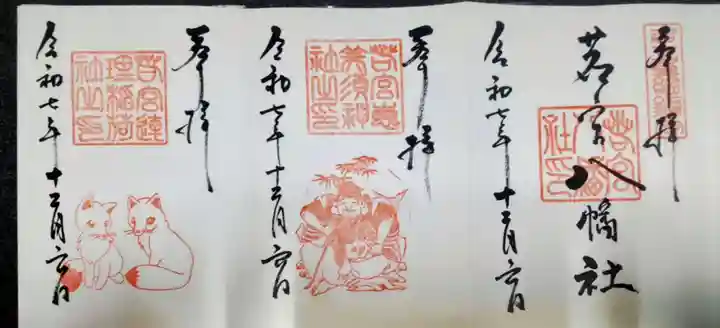 奉拝
若宮八幡社
若宮
八幡
社印
令和七年十二月六日
奉拝
若宮恵
美須神
社之印
令和七年十二月六日
奉拝
若宮達
理稲荷
社之印
令和七年十二月六日